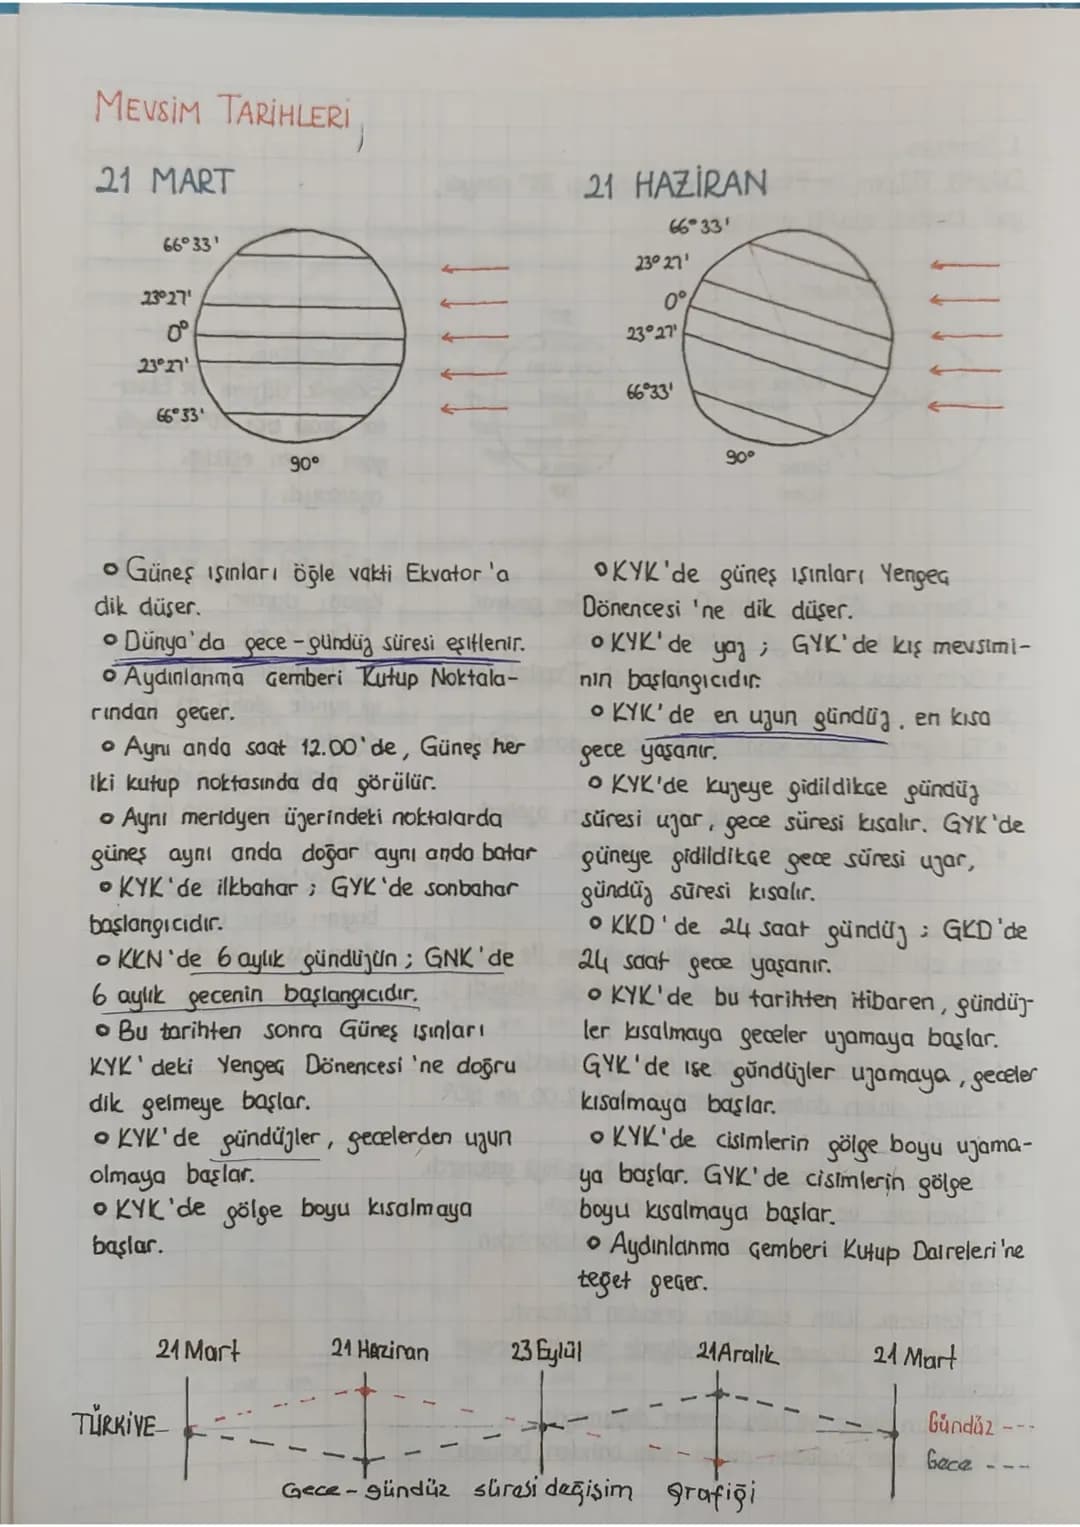 MEVSİM TARİHLERİ,
21 MART
66° 33'
23° 27'
0°
23° 27'
66° 33'
90°
o Güneş ışınları öğle vakti Ekvator'a
dik düşer.
o Dünya'da gece-gündüz süresi eşitlenir.
o Aydınlanma Çemberi Kutup Noktala-
rından geçer.
o Aynı anda saat 12.00'de, Güneş her
iki kutup noktasında da görülür.
o Aynı meridyen üzerindeki noktalarda
güneş aynı anda doğar aynı anda batar
o KYK'de ilkbahar; GYK'de sonbahar
başlangıcıdır.
o KKN'de 6 aylık gündüzün; GNK'de
6 aylık gecenin başlangıcıdır.
o Bu tarihten sonra Güneş ışınları
KYK'deki Yengeç Dönencesi'ne doğru
dik gelmeye başlar.
o KYK'de gündüzler, gecelerden uzun
olmaya başlar.
o KYK'de gölge boyu kısalmaya
başlar.
21 HAZİRAN
66° 33'
23° 27'
0°
23° 27'
66° 33'
90°
o KYK'de güneş ışınları Yengeç
Dönencesi'ne dik düşer.
o KYK'de yaz; GYK'de kış mevsimi-
nin başlangıcıdır.
o KYK'de en uzun gündüz, en kısa
gece yaşanır.
o KYK'de kuzeye gidildikçe gündüz
süresi uzar, gece süresi kısalır. GYK'de
güneye gidildikçe gece süresi uzar,
gündüz süresi kısalır.
o KKD'de 24 saat gündüz; GKD'de
24 saat gece yaşanır.
o KYK'de bu tarihten itibaren, gündüz-
ler kısalmaya geceler uzamaya başlar.
GYK'de ise gündüzler uzamaya, geceler
kısalmaya başlar.
o KYK'de cisimlerin gölge boyu uzama-
ya başlar. GYK'de cisimlerin gölge
boyu kısalmaya başlar.
o Aydınlanma Çemberi Kutup Daireleri'ne
teğet geçer.
21 Mart 21 Haziran 23 Eylül 21 Aralık 21 Mart
TÜRKİYE
Gündüz ---
Gece ---
Gece-gündüz süresi değişim grafiği